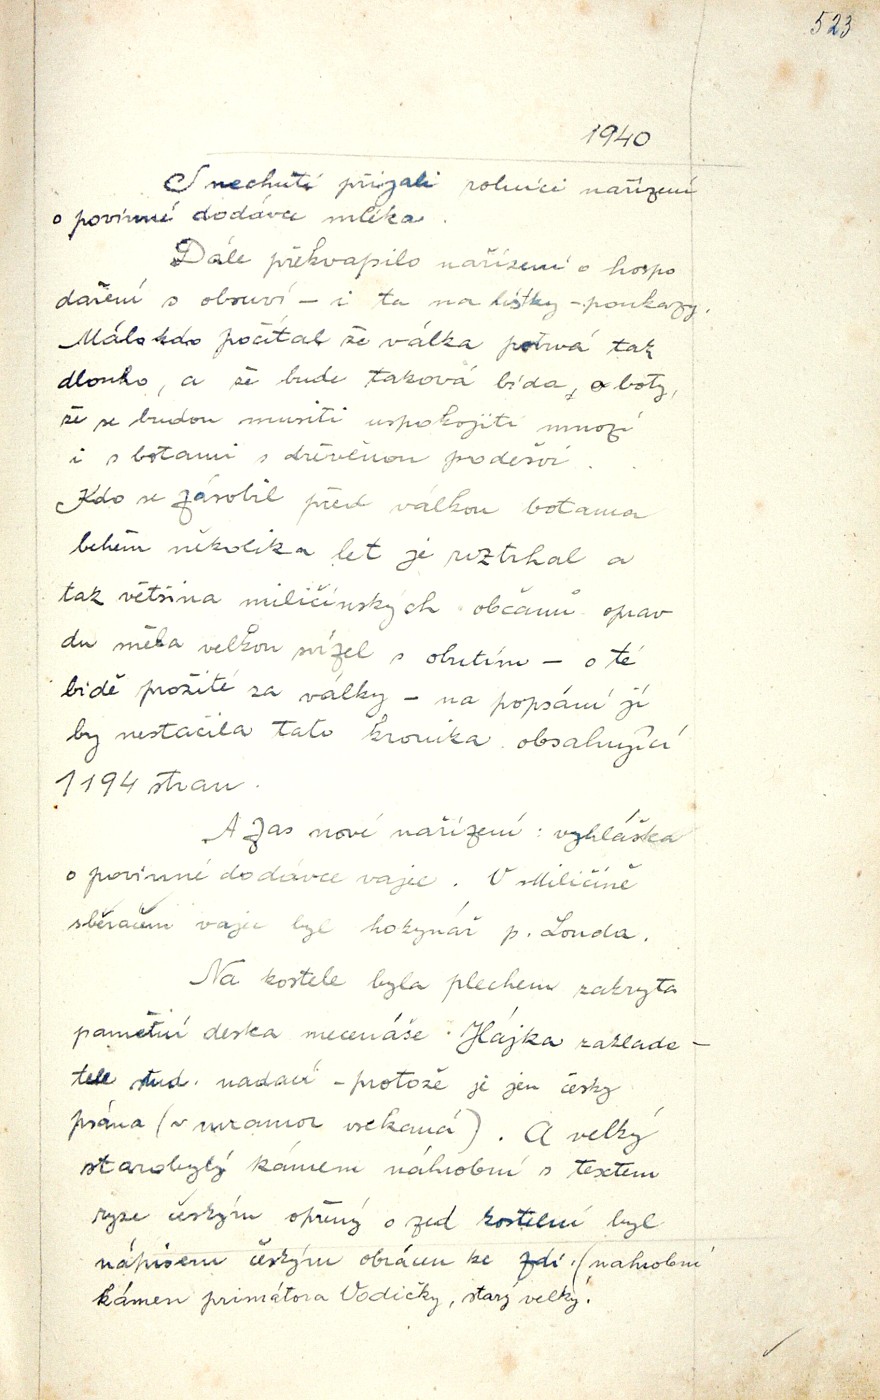 523
1940
S nechutí přijali rolníci nařízení
o povinné dodávce mléka.
Dále překvapilo nařízení o hospo
daření s obuví – i ta na lístky – poukazy.
Málokdo počítal že válka potrvá tak
dlouho, a že bude taková bída, o boty,
že se budou musiti uspokojiti mnozí
i s botami s dřevěnou podešví.
Kdo se zásobil před válkou botama
během několika let je roztrhal a
tak většina miličínských občanů oprav
du měla velkou svízel s obutím – o té
bídě prožité za války – na popsání jí
by nestačila tato kronika obsahující
1194 stran.
A zas nové nařízení: vyhláška
o povinné dodávce vajec. V Miličíně
sběračem vajec byl hokynář p. Louda.
Na kostele byla plechem zakryta
pamětní deska mecenáše Hájka zaklada–
tele stud. nadací – protože je jen česky
psána (v mramor vsekaná). A velký
starobylý kámem náhrobní s textem
ryze českým opřený o zeď kostelní byl
nápisem českým obrácen ke zdi. (nahrobní
kámen primátora Vodičky, starý velký.